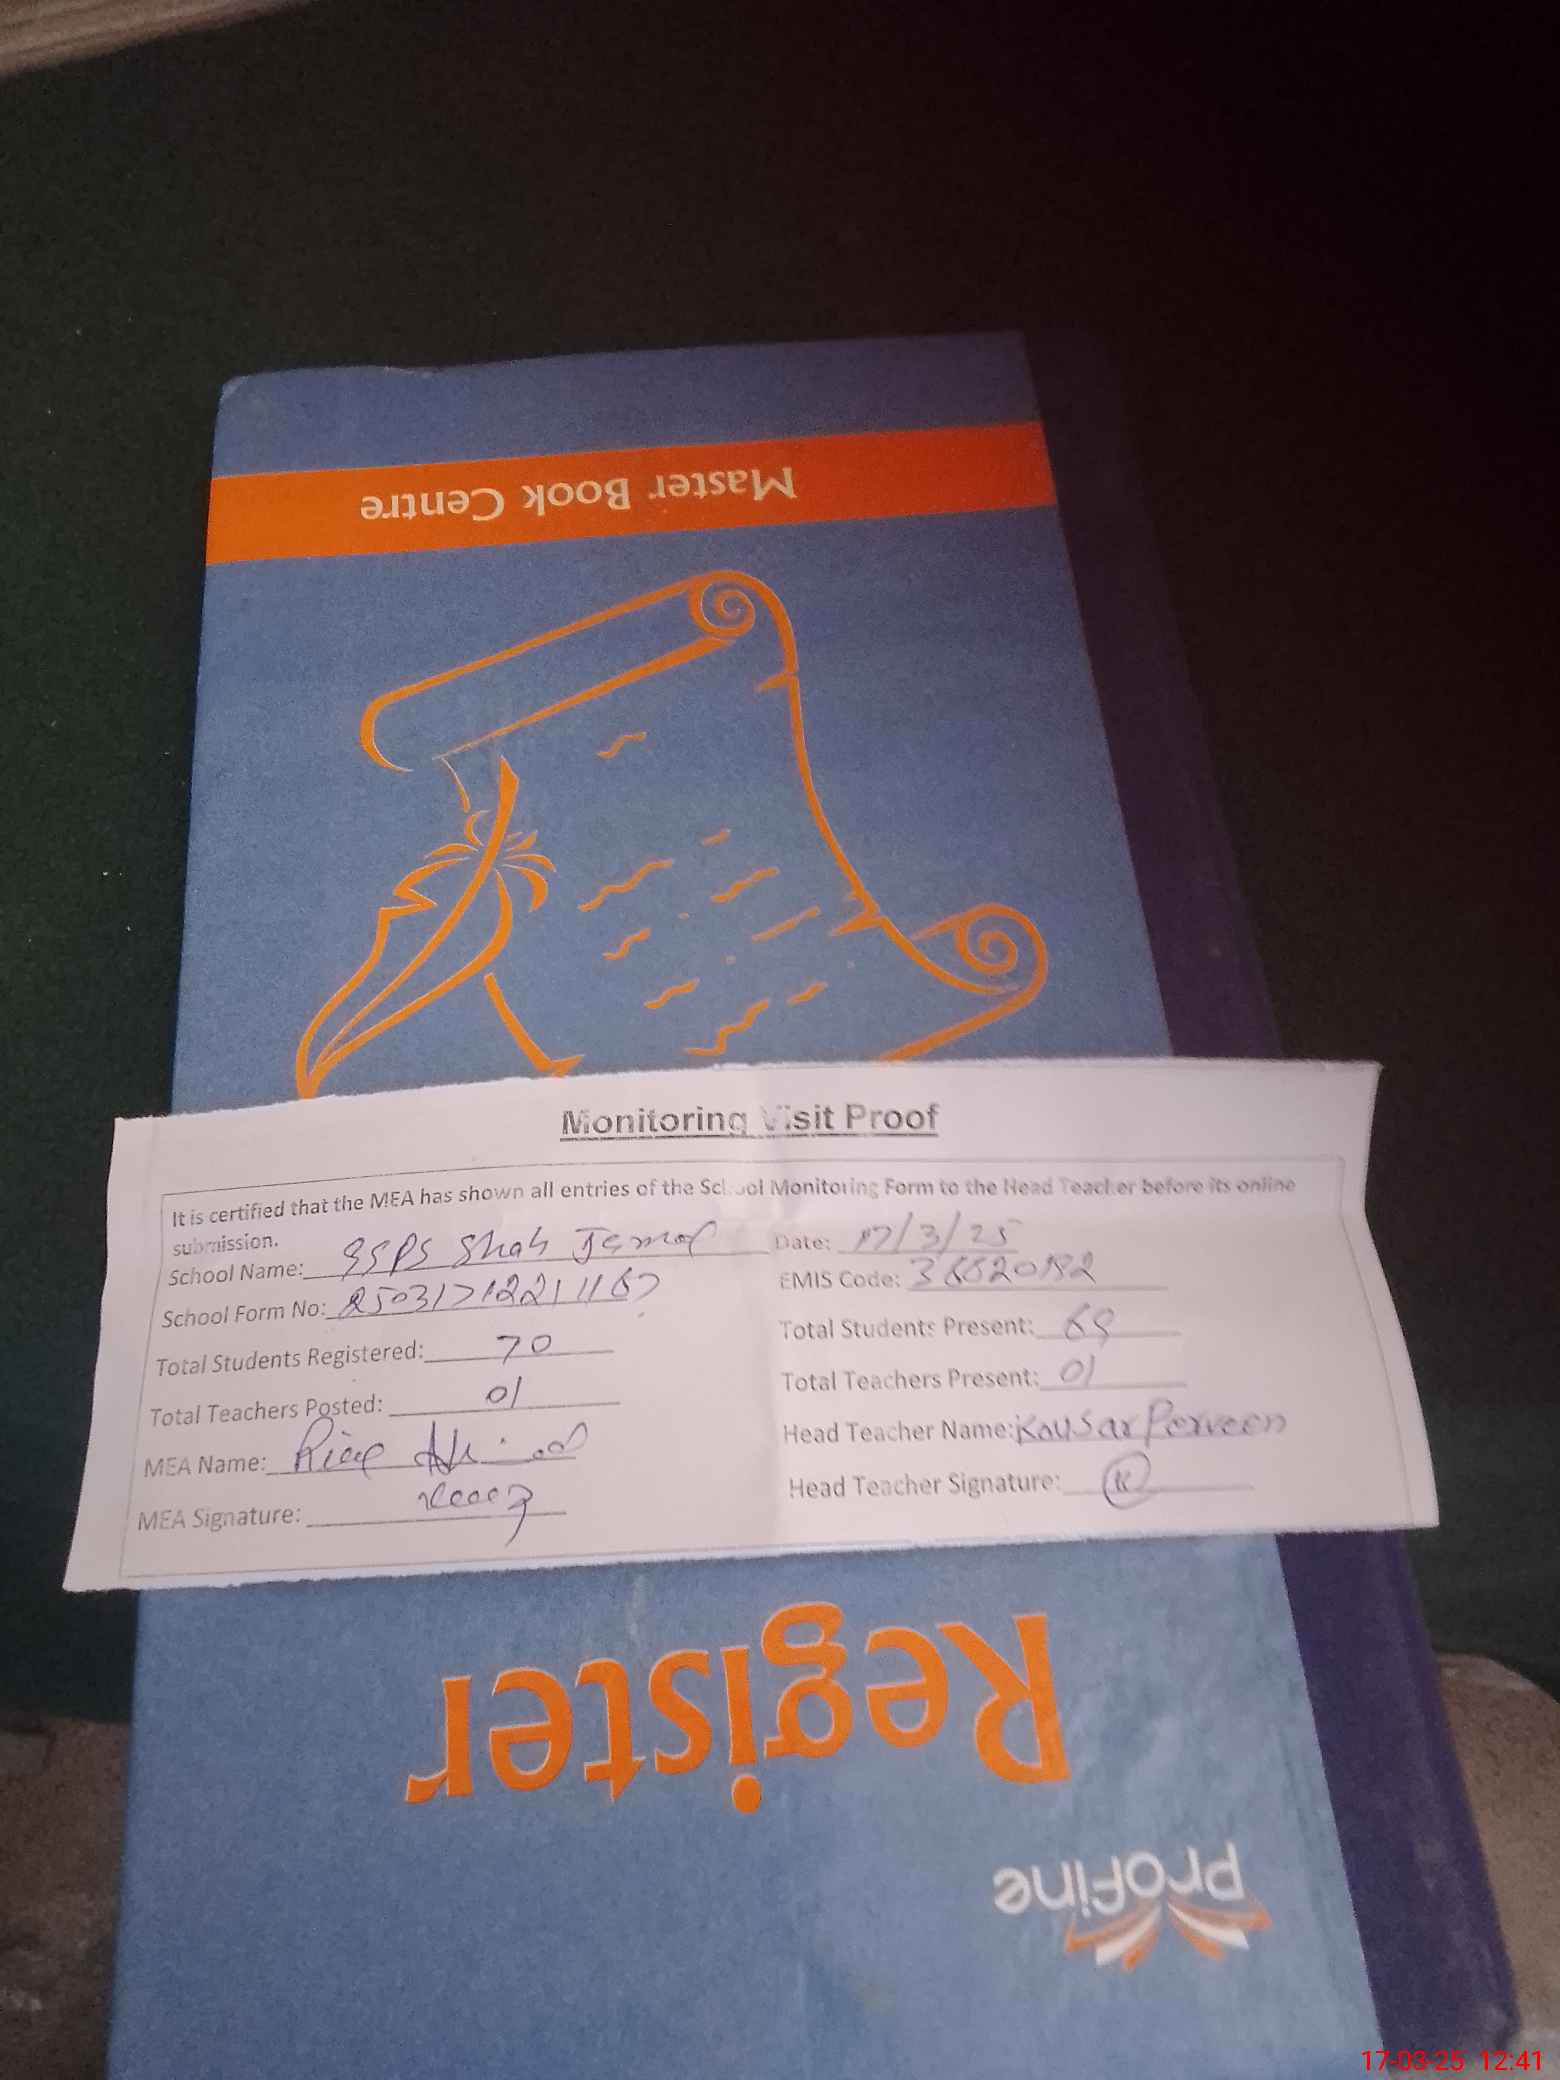 Master Book Centre
Monitoring Visit Proof
It is certified that the MEA has shown all entries of the School Monitoring Form to the Head Teacher before its online
submission.
School Name: GSPS Shah Jamal Date: 17/3/25
School Form No: EMIS Code:
Total Students Registered: 70 Total Students Present: 69
Total Teachers Posted: 01 Total Teachers Present: 01
MEA Name: Head Teacher Name: Kousar Perveen
MEA Signature: Head Teacher Signature:
Register
ProFine
17-03-25 12:41